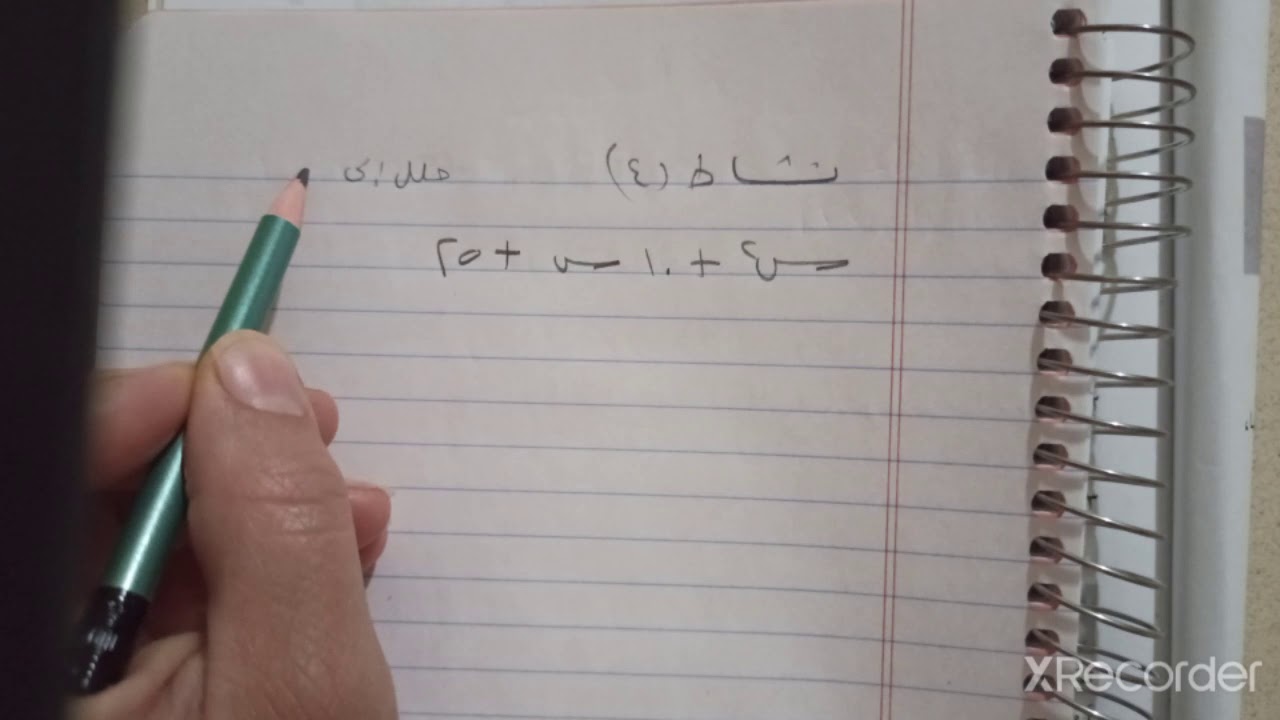 نشاط (٤) حلل إلى
س٢ + ١٠ س + ٢٥
XRecorder